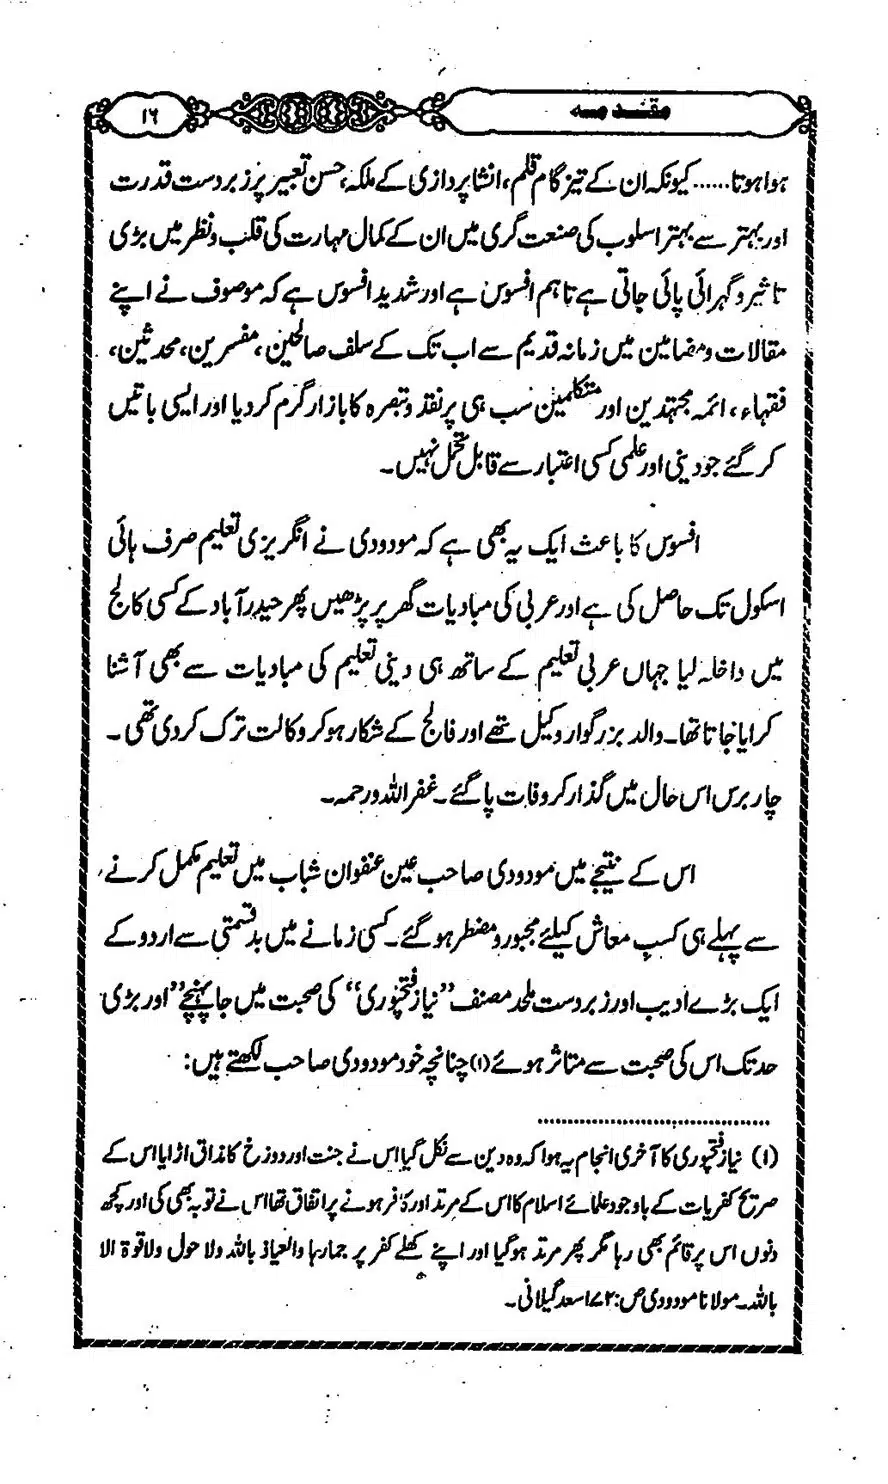 مقدمہ
۱۶
ہوا ہوتا...... کیونکہ ان کے تیز گام قلم، انشا پردازی کے ملکہ، حسن تعبیر پر زبردست قدرت
اور بہتر سے بہتر اسلوب کی صنعت گری میں ان کے کمال مہارت کی قلب و نظر میں بڑی
تاثیر و گہرائی پائی جاتی ہے تاہم افسوس ہے اور شدید افسوس ہے کہ موصوف نے اپنے
مقالات و مضامین میں زمانہ قدیم سے اب تک کے سلف صالحین، مفسرین، محدثین،
فقہاء، ائمہ مجتہدین اور متکلمین سب ہی پر نقد و تبصرہ کا بازار گرم کر دیا اور ایسی باتیں
کر گئے جو دینی اور علمی کسی اعتبار سے قابل تحمل نہیں۔
افسوس کا باعث ایک یہ بھی ہے کہ مودودی نے انگریزی تعلیم صرف ہائی
اسکول تک حاصل کی ہے اور عربی کی مبادیات گھر پر پڑھیں پھر حیدر آباد کے کسی کالج
میں داخلہ لیا جہاں عربی تعلیم کے ساتھ ہی دینی تعلیم کی مبادیات سے بھی آشنا
کرایا جاتا تھا۔ والد بزرگوار وکیل تھے اور فالج کے شکار ہو کر وکالت ترک کر دی تھی۔
چار برس اس حال میں گذار کر وفات پا گئے۔ غفر اللہ ورحمہ۔
اس کے نتیجے میں مودودی صاحب عین عنفوان شباب میں تعلیم مکمل کرنے
سے پہلے ہی کسب معاش کیلئے مجبور و مضطر ہو گئے۔ کسی زمانے میں بدقسمتی سے اردو کے
ایک بڑے ادیب اور زبردست ملحد مصنف ”نیاز فتحپوری“ کی صحبت میں جا پہنچے” اور بڑی
حد تک اس کی صحبت سے متاثر ہوئے (۱) چنانچہ خود مودودی صاحب لکھتے ہیں:
(۱) نیاز فتحپوری کا آخری انجام یہ ہوا کہ وہ دین سے نکل گیا اس نے جنت اور دوزخ کا مذاق اڑایا اس کے
صریح کفریات کے باوجود علمائے اسلام کا اس کے مرتد اور کافر ہونے پر اتفاق تھا اس نے توبہ بھی کی اور کچھ
دنوں اس پر قائم بھی رہا مگر پھر مرتد ہو گیا اور اپنے کھلے کفر پر جما رہا والعیاذ باللہ ولا حول ولا قوۃ الا
باللہ۔ مولانا مودودی ص:۷۲ اسعد گیلانی۔